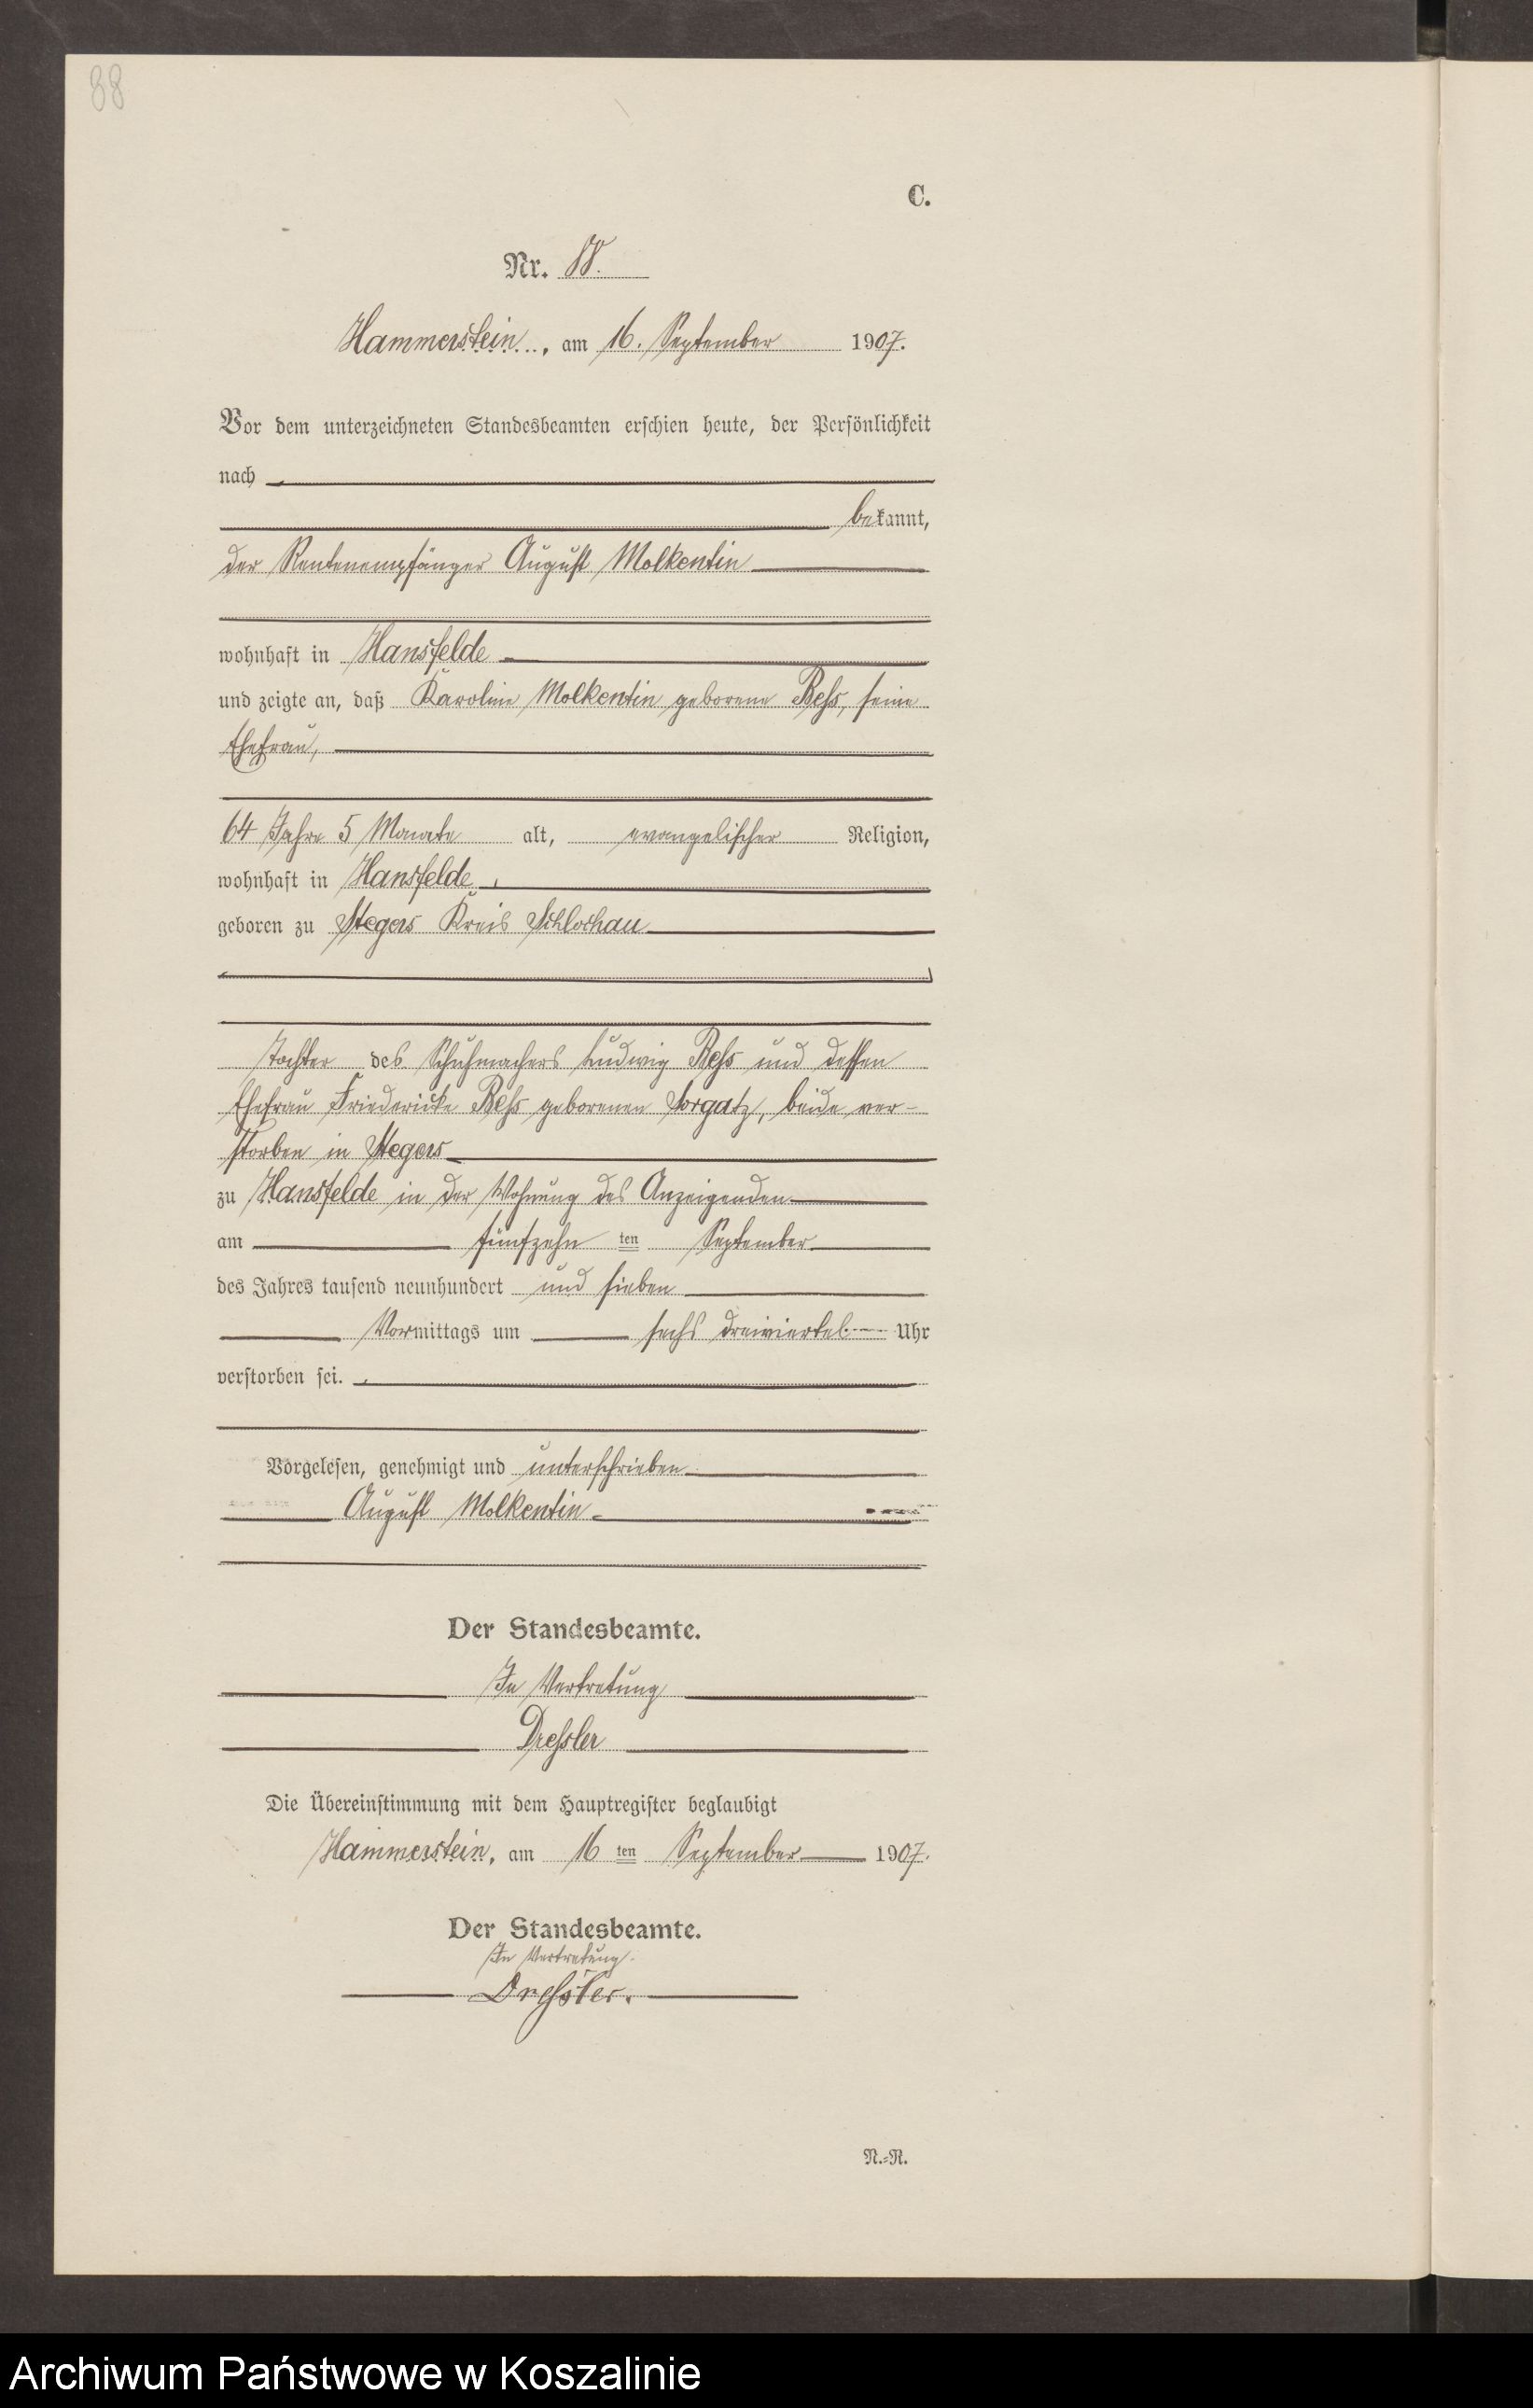 88
C.
Nr. 88.
Hammerstein, am 16. September 1907.
Vor dem unterzeichneten Standesbeamten erschien heute, der Persönlichkeit
nach
bekannt,
der Rentenempfänger August Molkentin
wohnhaft in Hansfelde
und zeigte an, daß Karoline Molkentin geborene Beſs, seine
Ehefrau,
64 Jahre 5 Monate alt, evangelischer Religion,
wohnhaft in Hansfelde,
geboren zu Stegers Kreis Schlochau
Tochter des Schuhmachers Ludwig Beſs und dessen
Ehefrau Friedericke Beſs geborenen Sorgatz, beide ver-
storben in Stegers
zu Hansfelde in der Wohnung des Anzeigenden
am fünfzehn ten September
des Jahres tausend neunhundert und sieben
Vormittags um sechs dreiviertel Uhr
verstorben sei.
Vorgelesen, genehmigt und unterschrieben
August Molkentin
Der Standesbeamte.
In Vertretung
Dreſsler
Die Übereinstimmung mit dem Hauptregister beglaubigt
Hammerstein, am 16 ten September 1907.
Der Standesbeamte.
In Vertretung.
Dreſsler.
N.=R.
Archiwum Państwowe w Koszalinie